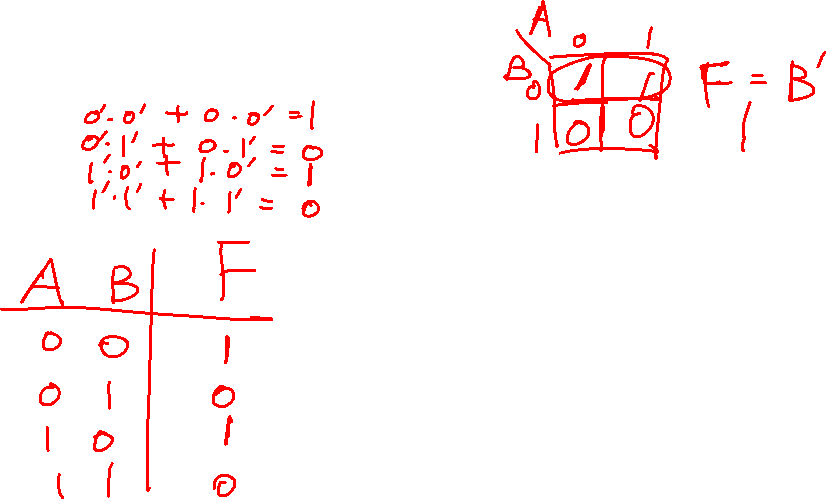 0'·0' + 0·0' = 1
0'·1' + 0·1' = 0
1'·0' + 1·0' = 1
1'·1' + 1·1' = 0
A B F
0 0 1
0 1 0
1 0 1
1 1 0
A
0 1
B
0 1 1
1 0 0
F = B'
1